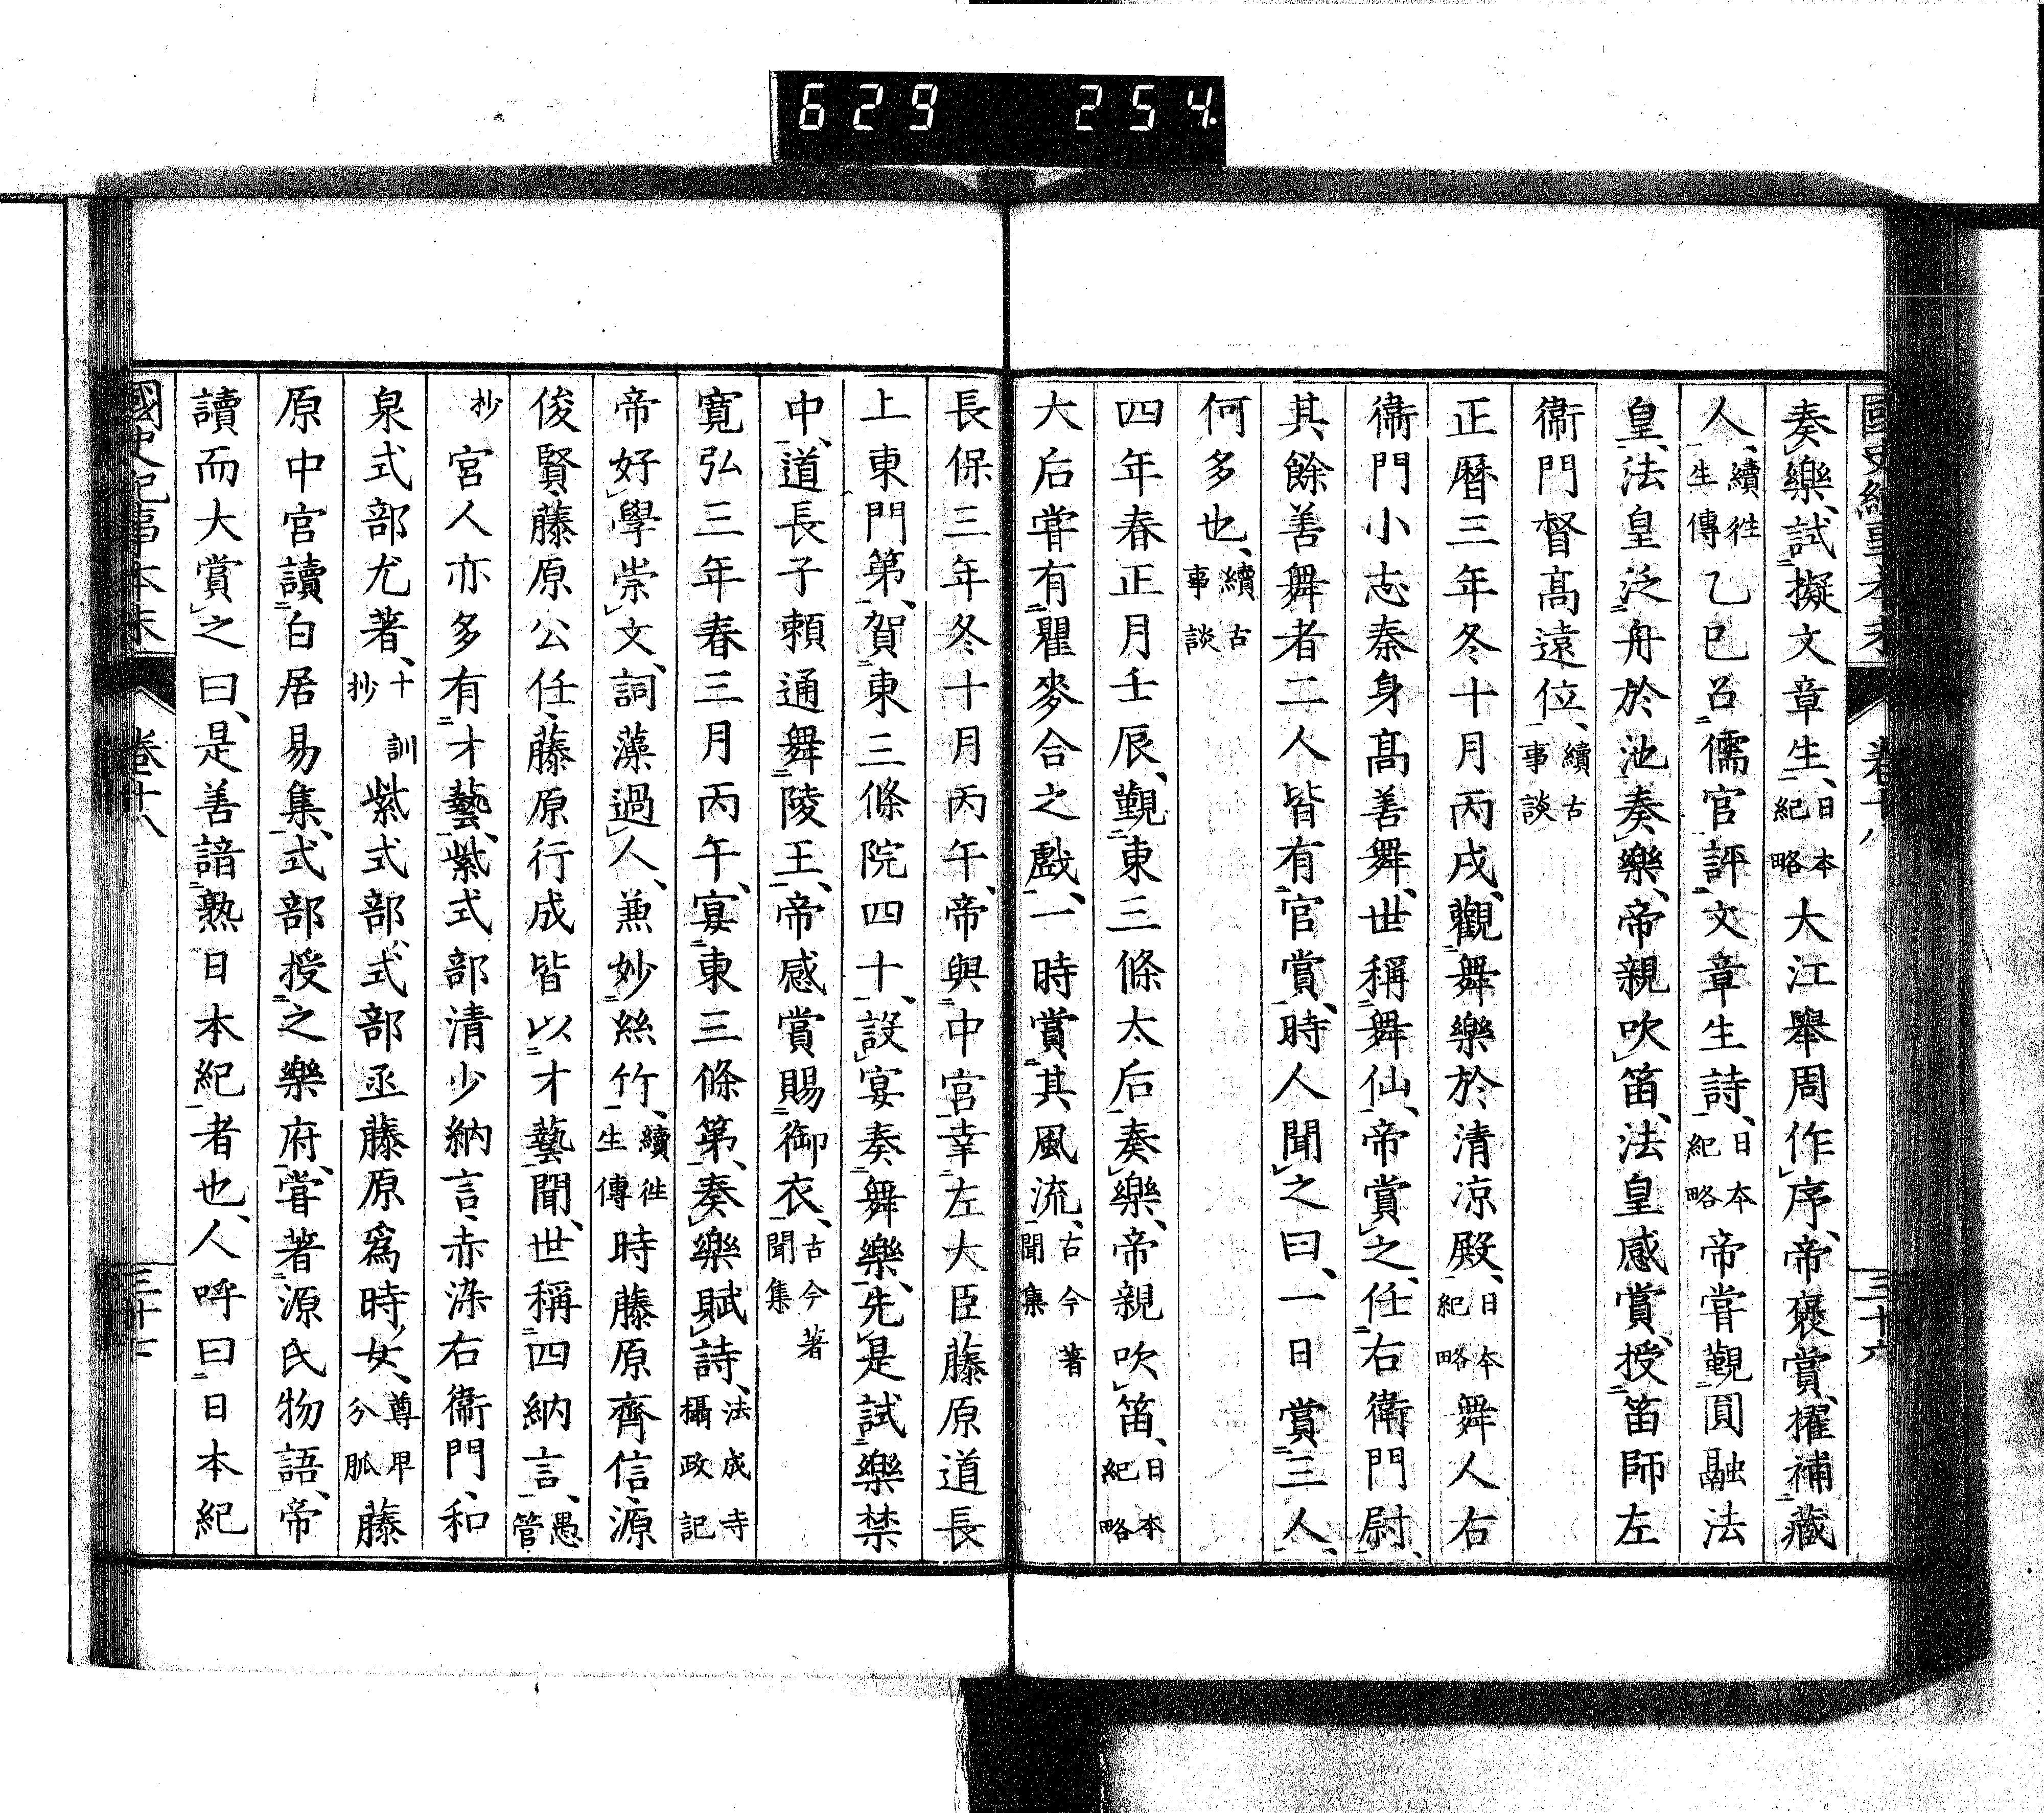 629 254
國史紀事本末 卷十八 三十六
奏樂、試擬文章生、日本紀略大江舉周作序、帝褒賞、擢補藏
人、續往生傳乙巳召儒官評文章生詩、日本紀略帝嘗覲圓融法
皇、法皇泛舟於池奏樂、帝親吹笛、法皇感賞、授笛師左
衞門督高遠位、續古事談
正曆三年冬十月丙戌、觀舞樂於清凉殿、日本紀略舞人右
衞門小志秦身高善舞、世稱舞仙、帝賞之、任右衞門尉、
其餘善舞者二人皆有官賞、時人聞之曰、一日賞三人、
何多也、續古事談
四年春正月壬辰、覲東三條太后、奏樂、帝親吹笛、日本紀略
大后嘗有瞿麥合之戲、一時賞其風流、古今著聞集
長保三年冬十月丙午、帝與中宮幸左大臣藤原道長
上東門第、賀東三條院四十、設宴奏舞樂、先是試樂禁
中、道長子賴通舞陵王、帝感賞賜御衣、古今著聞集
寬弘三年春三月丙午、宴東三條第、奏樂賦詩、法成寺攝政記
帝好學崇文、詞藻過人、兼妙絲竹、續往生傳時藤原齊信、源
俊賢、藤原公任、藤原行成皆以才藝聞、世稱四納言、愚管
抄宮人亦多有才藝、紫式部清少納言、赤染右衞門、和
泉式部尤著、十訓抄紫式部、式部丞藤原爲時女、尊卑分脈藤
原中宮讀白居易集、式部授之樂府、嘗著源氏物語、帝
讀而大賞之曰、是善諳熟日本紀者也、人呼曰日本紀
國史紀事本末 卷十八 三十七